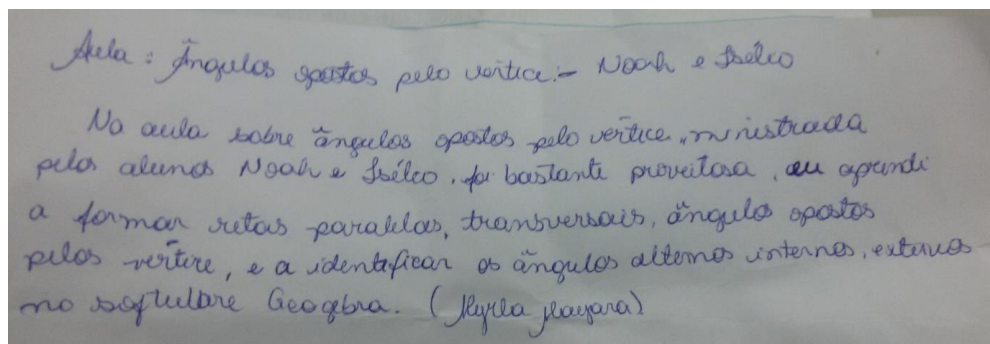 Aula: Ângulos opostos pelo vertice:- Noah e Isélco
Na aula sobre ângulos opostos pelo vértice, ministrada
pelos alunos Noah e Isélco, foi bastante proveitosa, eu aprendi
a formar retas paralelas, transversais, ângulos opostos
pelos vértice, e a identificar os ângulos alternos internos, externos
no softulare Geogebra. (